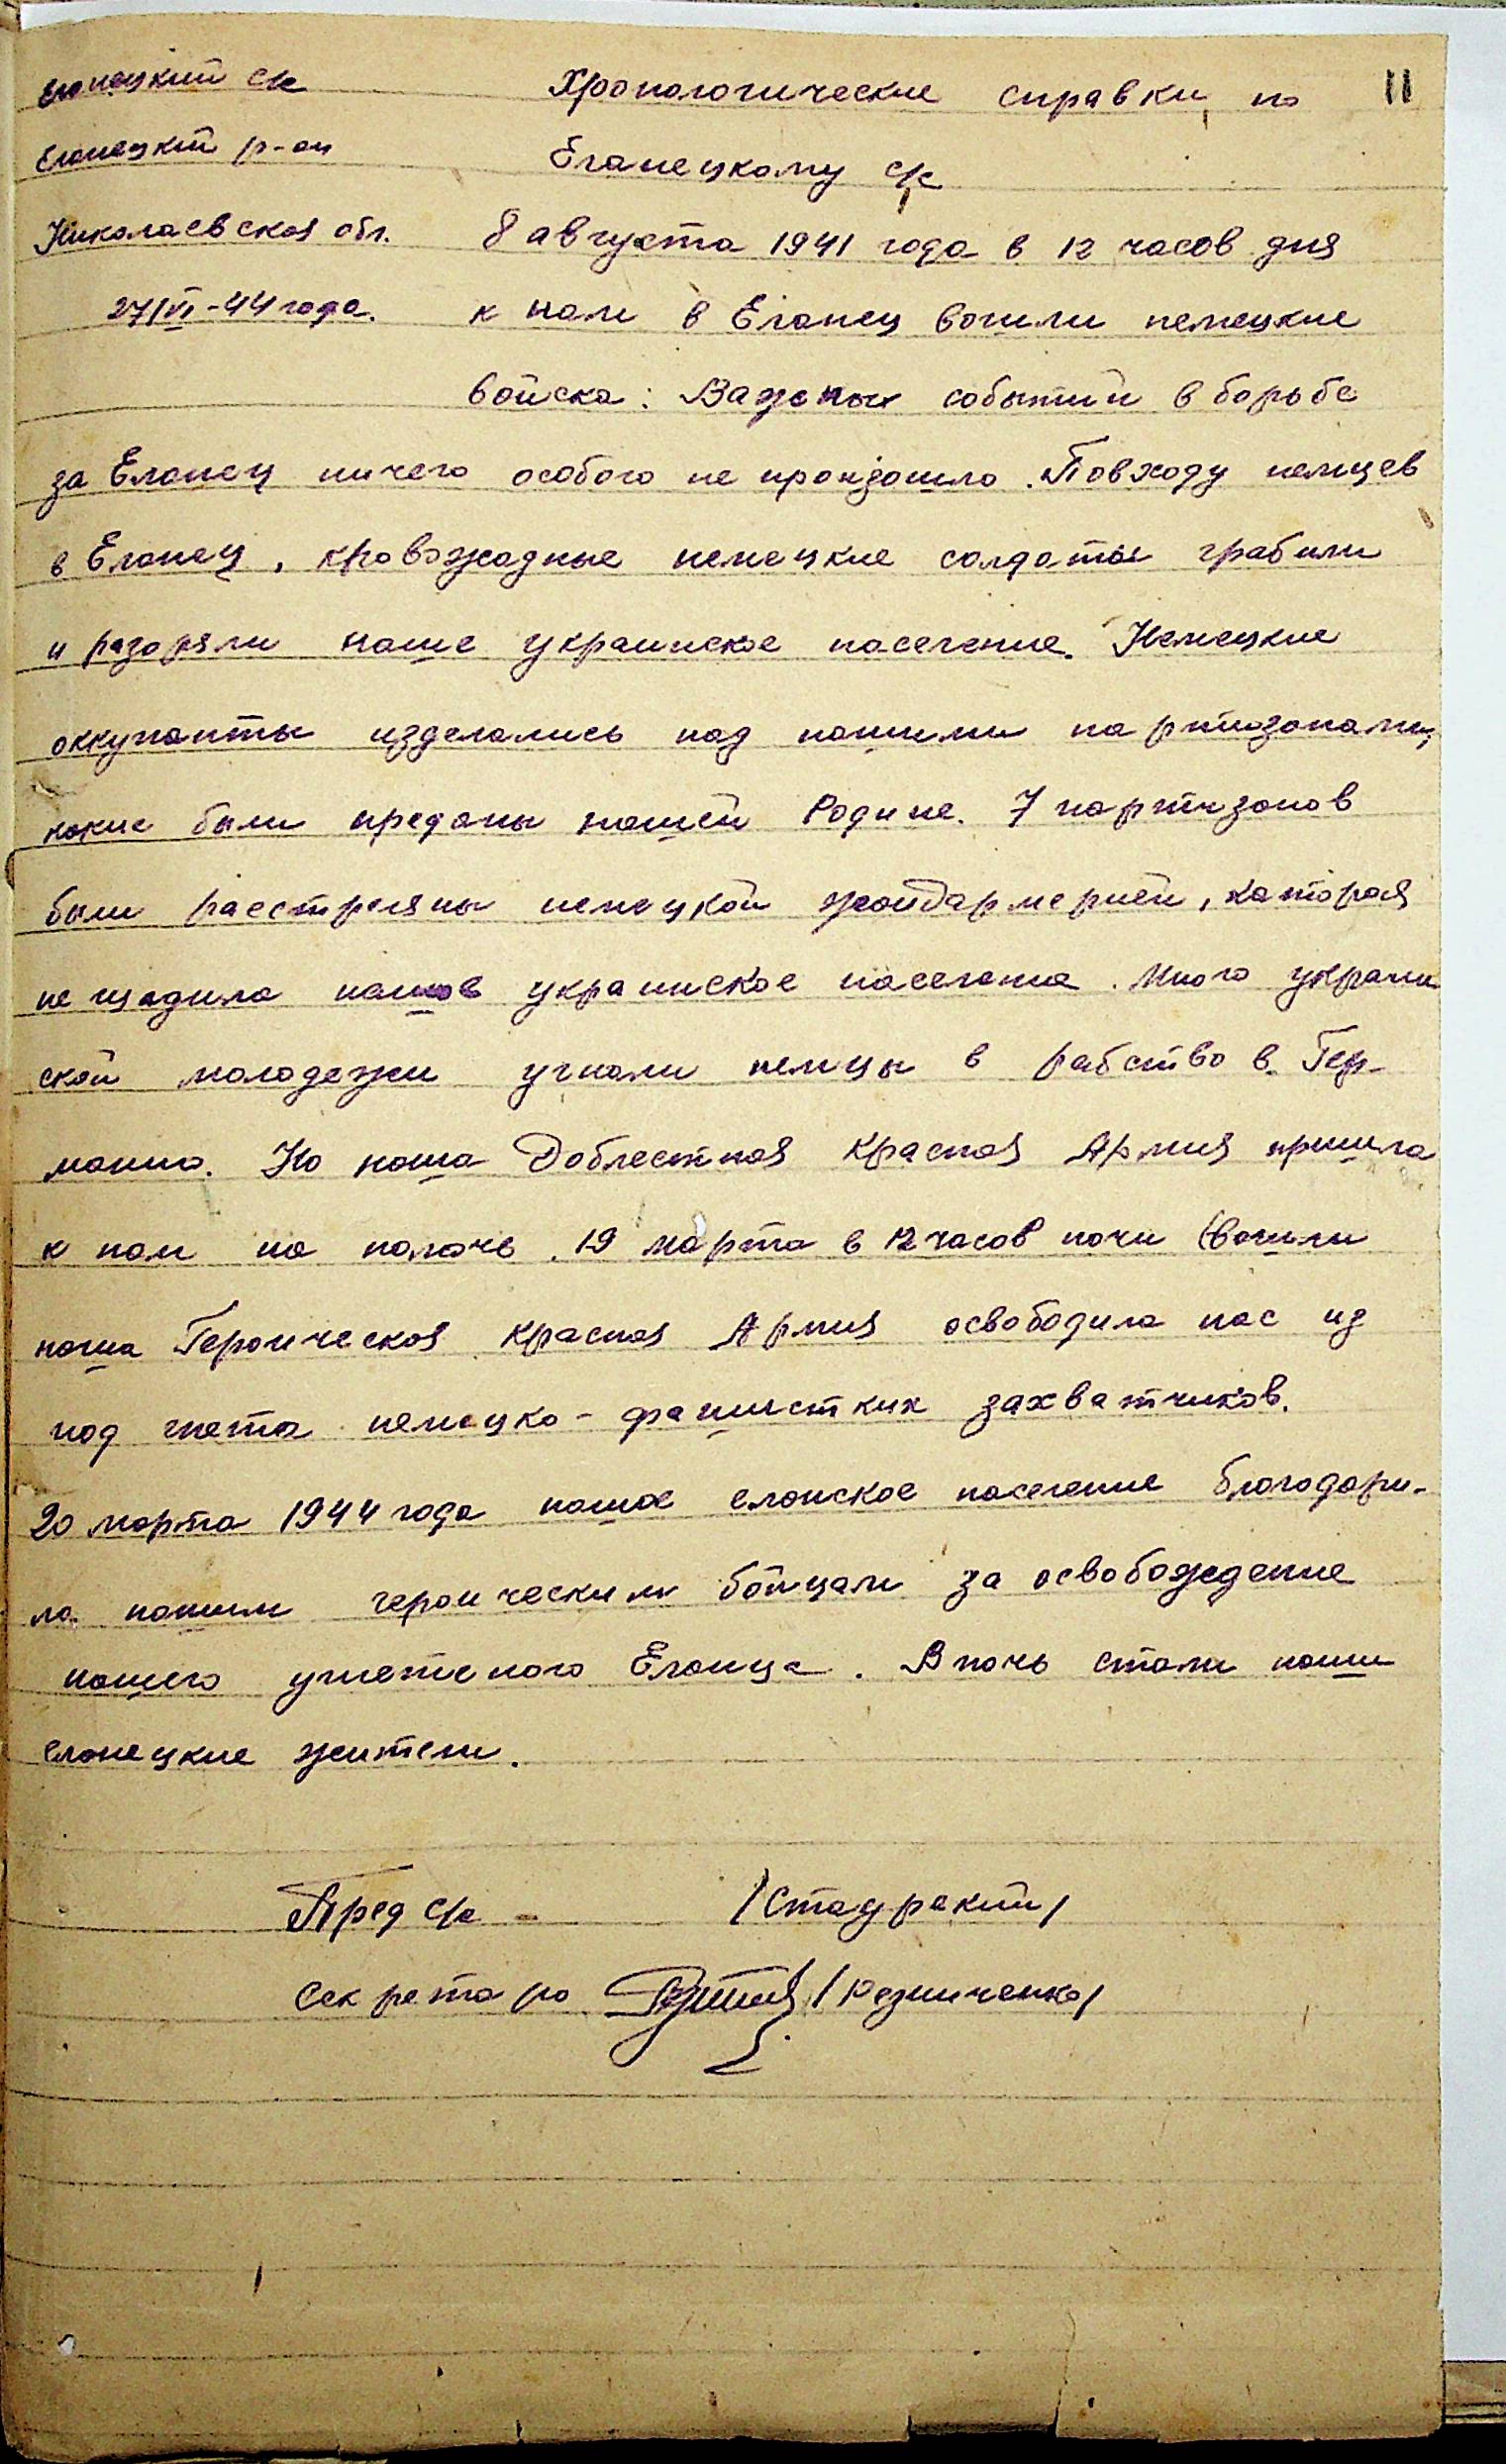 Еланецкий с/с
Хронологические справки по 11
Еланецкий р-он
Еланецкому с/с
Николаевская обл.
8 августа 1941 года в 12 часов дня
27/VI-44 года.
к нам в Еланец вошли немецкие
войска: Важных событий в борьбе
за Еланец ничего особого не произошло. По входу немцев
в Еланец, кровожадные немецкие солдаты грабили
и разоряли наше украинское население. Немецкие
оккупанты изделались над нашими партизанами,
какие были преданы нашей Родине. 7 партизанов
были расстреляны немецкой жандармерией, которая
не щадила нашое украинское население. Много украин
ской молодежи угнали немцы в рабство в Гер-
манию. Но наша Доблестная Красная Армия пришла
к нам на помочь. 19 марта в 12 часов ночи вошли
наша Героическая Красная Армия освободила нас из
под гнета немецко-фашистких захватчиков.
20 марта 1944 года нашое еланское население благодари-
ло нашим героическим бойцам за освобождение
нашего угнетеного Еланца. В ночь стали наши
еланецкие жители.
Пред с/с /Стадракий/
Секретарь /Резниченко/